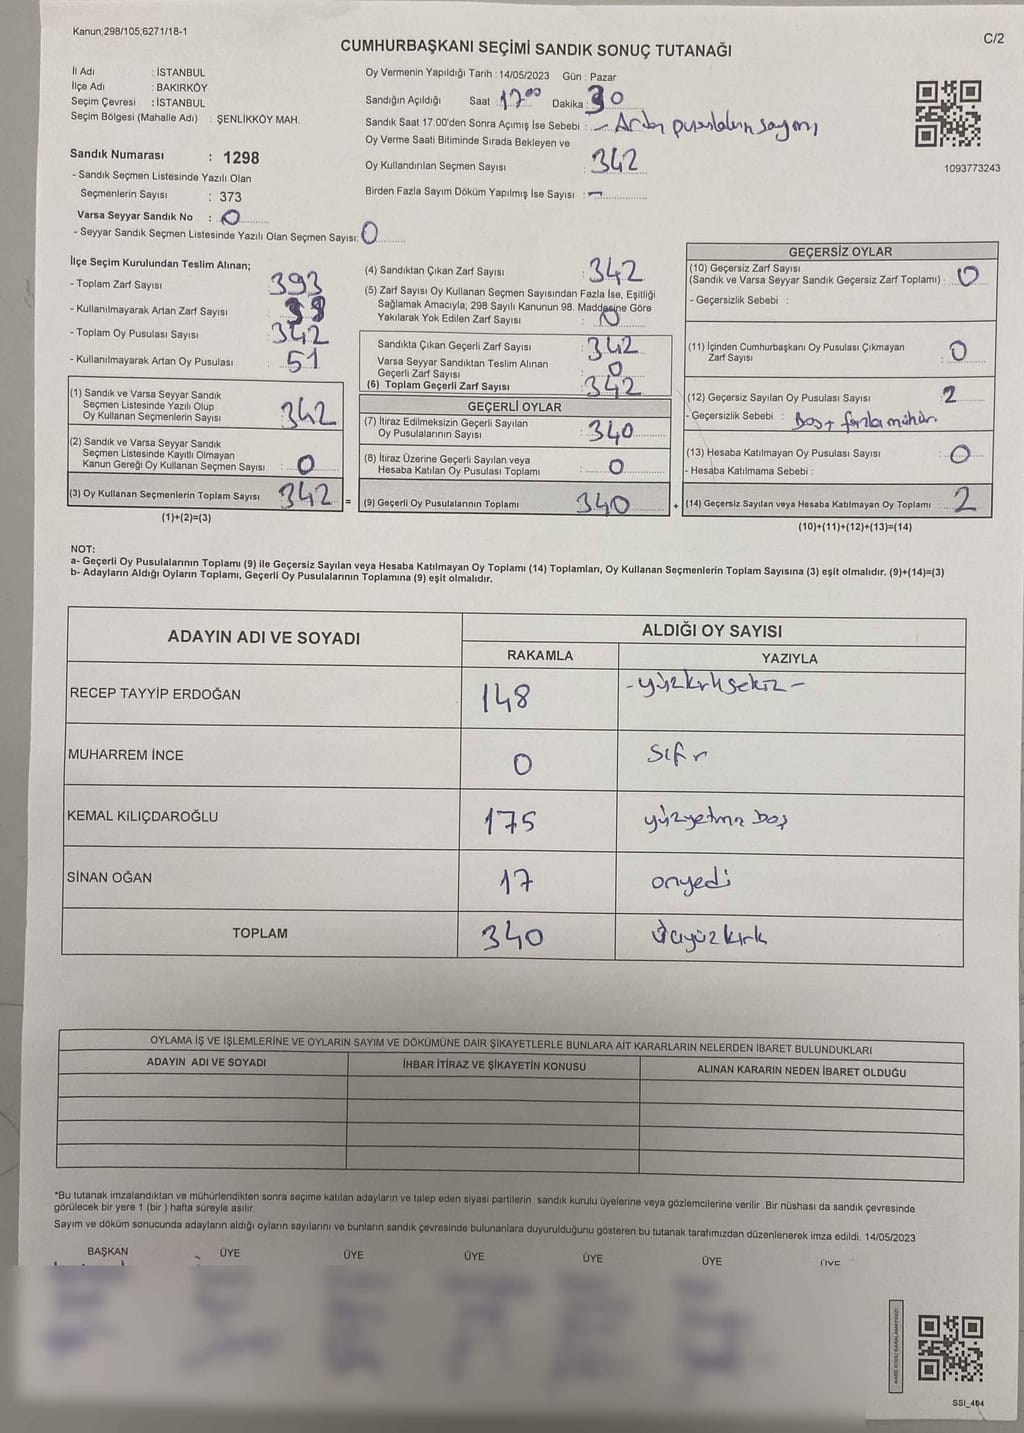 Kanun;298/105;6271/18-1
C/2
CUMHURBAŞKANI SEÇİMİ SANDIK SONUÇ TUTANAĞI
İl Adı : İSTANBUL
İlçe Adı : BAKIRKÖY
Seçim Çevresi : İSTANBUL
Seçim Bölgesi (Mahalle Adı) : ŞENLİKKÖY MAH.
Sandık Numarası : 1298
- Sandık Seçmen Listesinde Yazılı Olan
Seçmenlerin Sayısı : 373
Varsa Seyyar Sandık No : 0
- Seyyar Sandık Seçmen Listesinde Yazılı Olan Seçmen Sayısı: 0
Oy Vermenin Yapıldığı Tarih : 14/05/2023 Gün : Pazar
Sandığın Açıldığı Saat : 17°° Dakika : 30
Sandık Saat 17:00'den Sonra Açımış İse Sebebi : - Artan pusulaların sayımı
Oy Verme Saati Bitiminde Sırada Bekleyen ve
Oy Kullandırılan Seçmen Sayısı : 342
Birden Fazla Sayım Döküm Yapılmış İse Sayısı : -
1093773243
İlçe Seçim Kurulundan Teslim Alınan;
- Toplam Zarf Sayısı : 393
- Kullanılmayarak Artan Zarf Sayısı :
- Toplam Oy Pusulası Sayısı : 342
- Kullanılmayarak Artan Oy Pusulası : 51
(1) Sandık ve Varsa Seyyar Sandık
Seçmen Listesinde Yazılı Olup
Oy Kullanan Seçmenlerin Sayısı : 342
(2) Sandık ve Varsa Seyyar Sandık
Seçmen Listesinde Kayıtlı Olmayan
Kanun Gereği Oy Kullanan Seçmen Sayısı : 0
(3) Oy Kullanan Seçmenlerin Toplam Sayısı : 342
(1)+(2)=(3)
=
(4) Sandıktan Çıkan Zarf Sayısı : 342
(5) Zarf Sayısı Oy Kullanan Seçmen Sayısından Fazla İse, Eşitliği
Sağlamak Amacıyla; 298 Sayılı Kanunun 98. Maddesine Göre
Yakılarak Yok Edilen Zarf Sayısı : 0
Sandıkta Çıkan Geçerli Zarf Sayısı : 342
Varsa Seyyar Sandıktan Teslim Alınan
Geçerli Zarf Sayısı : 0
(6) Toplam Geçerli Zarf Sayısı : 342
GEÇERLİ OYLAR
(7) İtiraz Edilmeksizin Geçerli Sayılan
Oy Pusulalarının Sayısı : 340
(8) İtiraz Üzerine Geçerli Sayılan veya
Hesaba Katılan Oy Pusulası Toplamı : 0
(9) Geçerli Oy Pusulalarının Toplamı 340
+
GEÇERSİZ OYLAR
(10) Geçersiz Zarf Sayısı
(Sandık ve Varsa Seyyar Sandık Geçersiz Zarf Toplamı) : 0
- Geçersizlik Sebebi :
(11) İçinden Cumhurbaşkanı Oy Pusulası Çıkmayan
Zarf Sayısı : 0
(12) Geçersiz Sayılan Oy Pusulası Sayısı : 2
- Geçersizlik Sebebi : Boş + fazla mühür
(13) Hesaba Katılmayan Oy Pusulası Sayısı : 0
- Hesaba Katılmama Sebebi :
(14) Geçersiz Sayılan veya Hesaba Katılmayan Oy Toplamı : 2
(10)+(11)+(12)+(13)=(14)
NOT:
a- Geçerli Oy Pusulalarının Toplamı (9) ile Geçersiz Sayılan veya Hesaba Katılmayan Oy Toplamı (14) Toplamları, Oy Kullanan Seçmenlerin Toplam Sayısına (3) eşit olmalıdır. (9)+(14)=(3)
b- Adayların Aldığı Oyların Toplamı, Geçerli Oy Pusulalarının Toplamına (9) eşit olmalıdır.
ADAYIN ADI VE SOYADI
ALDIĞI OY SAYISI
RAKAMLA YAZIYLA
RECEP TAYYİP ERDOĞAN 148 -yüzkırksekiz-
MUHARREM İNCE 0 sıfır
KEMAL KILIÇDAROĞLU 175 yüzyetmiş beş
SİNAN OĞAN 17 onyedi
TOPLAM 340 üçyüzkırk
OYLAMA İŞ VE İŞLEMLERİNE VE OYLARIN SAYIM VE DÖKÜMÜNE DAİR ŞİKAYETLERLE BUNLARA AİT KARARLARIN NELERDEN İBARET BULUNDUKLARI
ADAYIN ADI VE SOYADI İHBAR İTİRAZ VE ŞİKAYETİN KONUSU ALINAN KARARIN NEDEN İBARET OLDUĞU
*Bu tutanak imzalandıktan ve mühürlendikten sonra seçime katılan adayların ve talep eden siyasi partilerin sandık kurulu üyelerine veya gözlemcilerine verilir .Bir nüshası da sandık çevresinde
görülecek bir yere 1 (bir ) hafta süreyle asılır.
Sayım ve döküm sonucunda adayların aldığı oyların sayılarını ve bunların sandık çevresinde bulunanlara duyurulduğunu gösteren bu tutanak tarafımızdan düzenlenerek imza edildi. 14/05/2023
BAŞKAN ÜYE ÜYE ÜYE ÜYE ÜYE ÜYE
KARE KODU KARALAMAYINIZ!
SSI_404